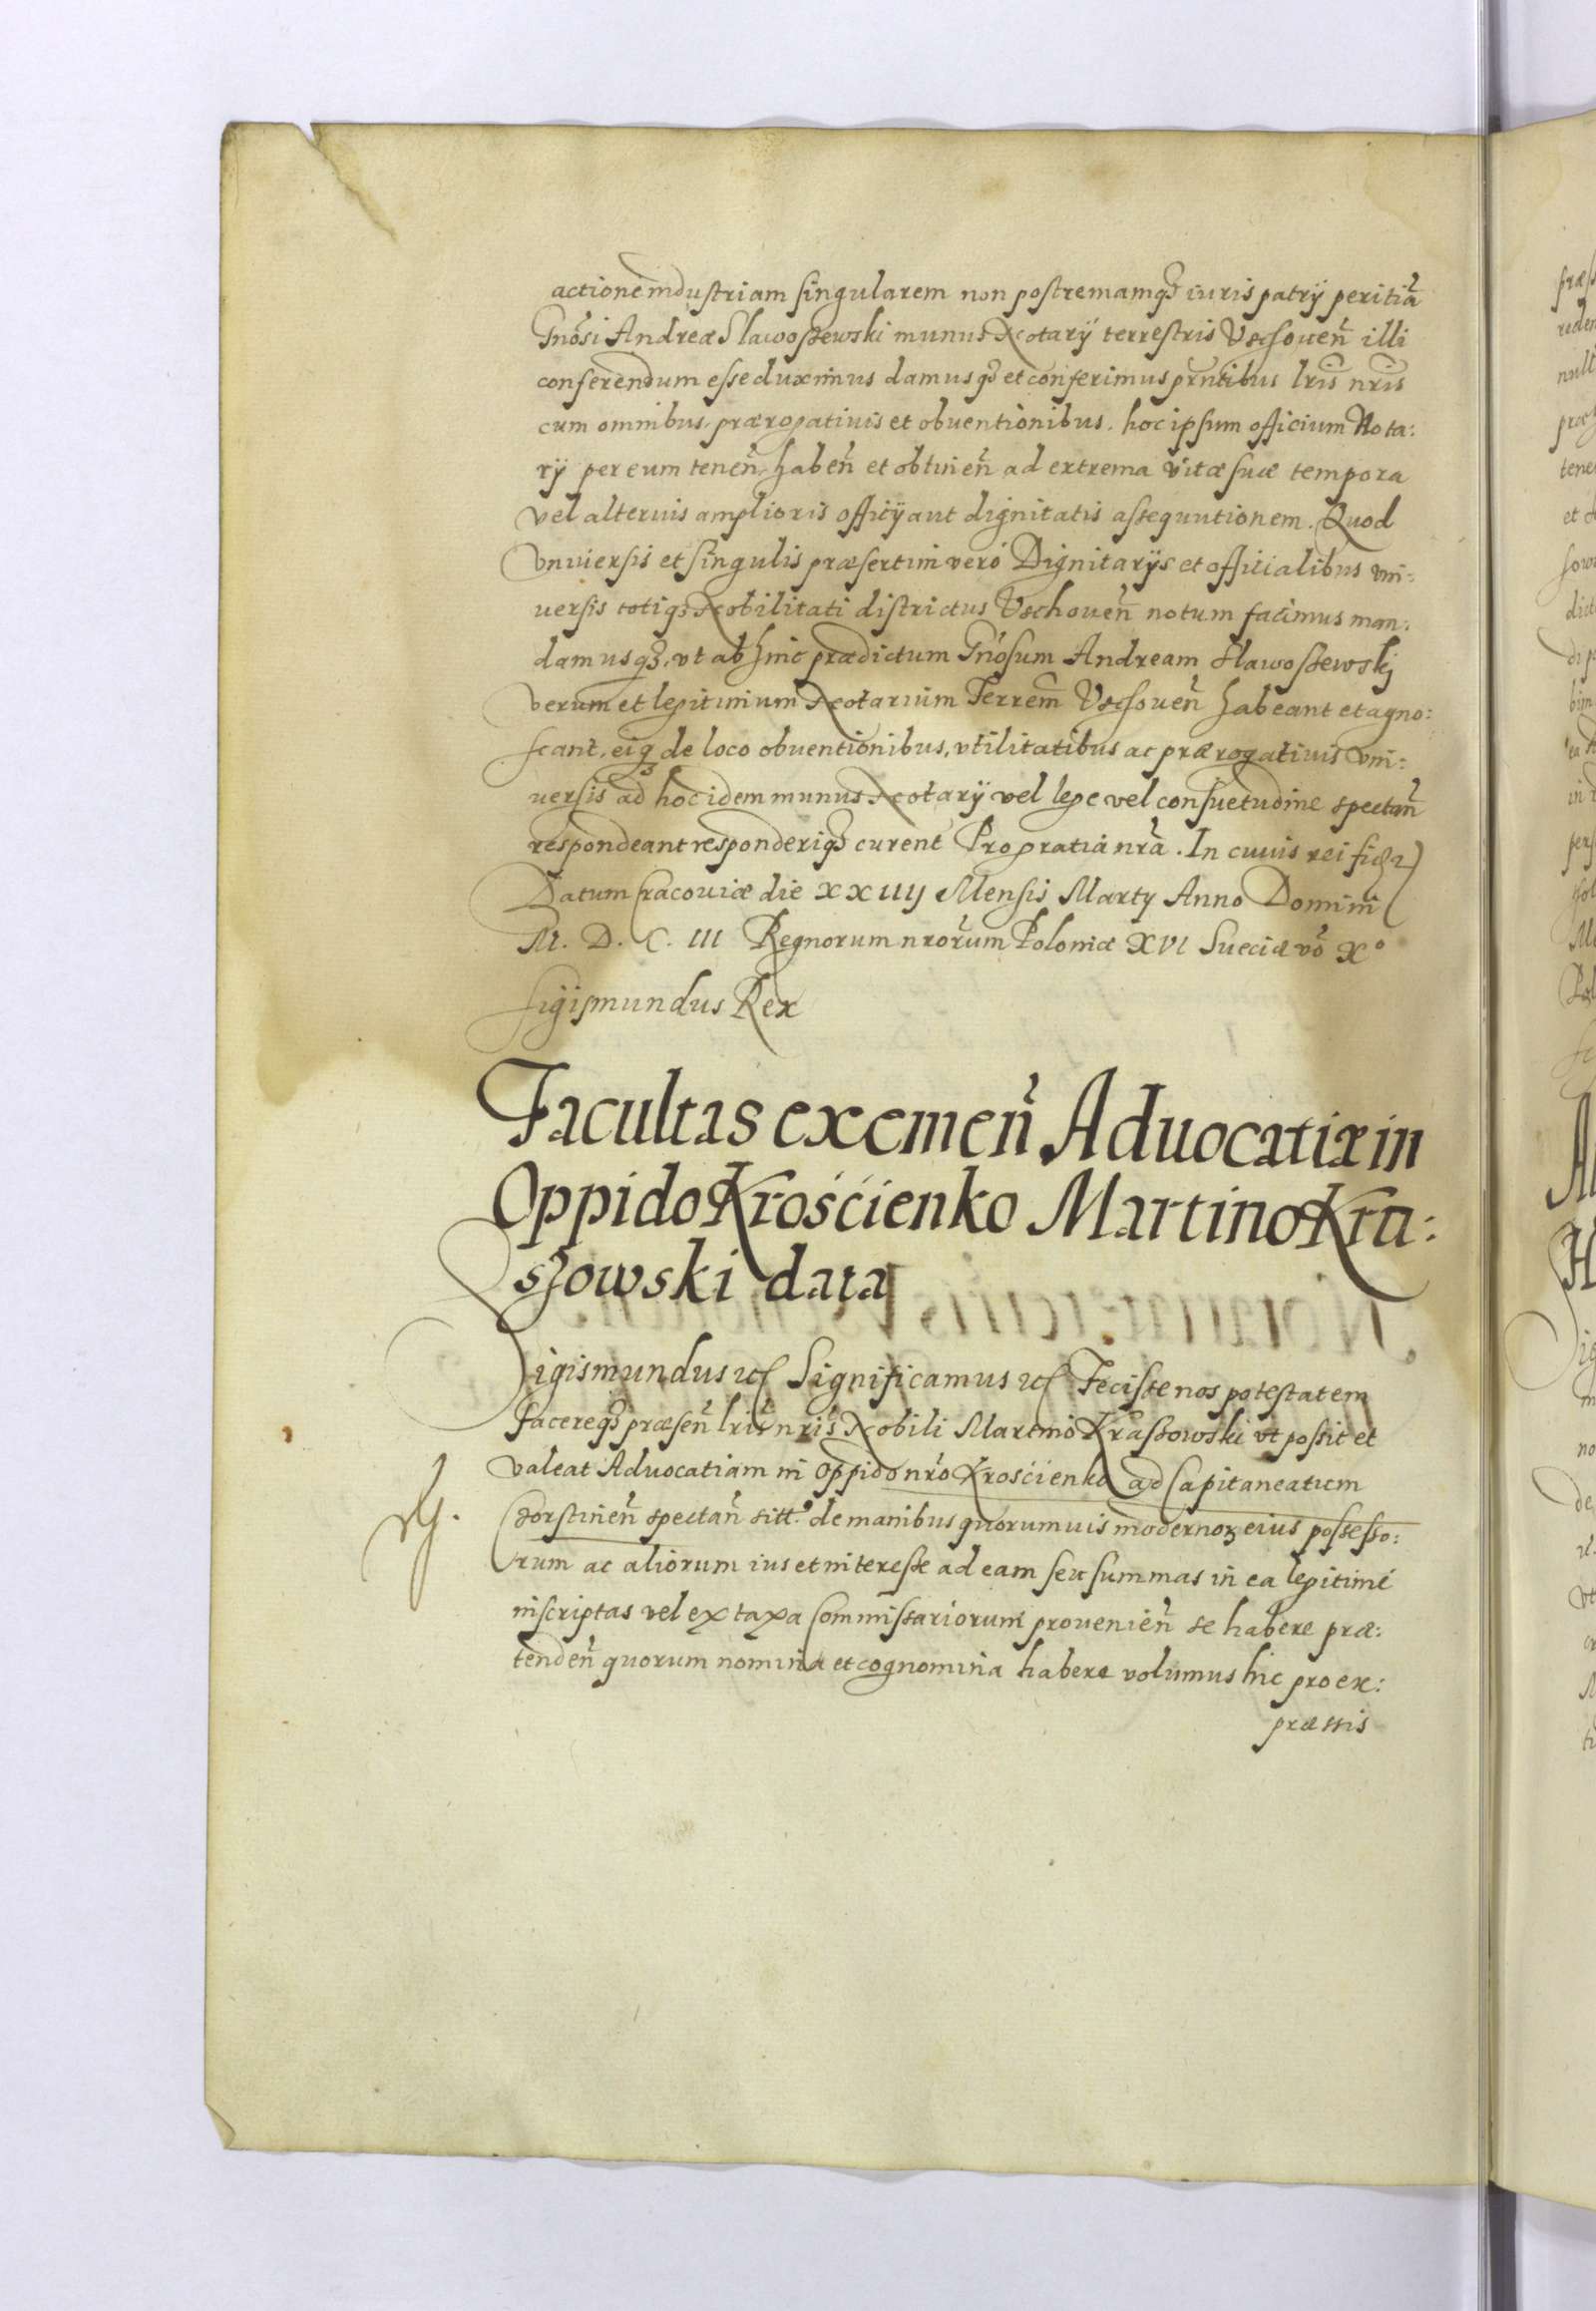 actione industriam singularem non postremamq3 iuris patrij peritiã
Gnosi Andreæ Slawoszewski munus Notarij terrestris Vschouen̄ illi
conferendum esse duximus damusq3 et conferimus pr̃ntibus lr̃is nr̃is
cum omnibus prærogatiuis et obuentionibus. hoc ipsum officium Nota:
rij per eum tenen̄ haben̄ et obtinen̄ ad extrema vitæ suæ tempora
vel alterius amplioris officij aut dignitatis assequutionem. Quod
vniuersis et singulis præsertim vero Dignitarijs et officialibus vni:
uersis totiq3 Nobilitati districtus Vschouen̄ notum facimus man:
damusq3, vt ab hinc prædictum Gnosum Andream Slawoszewskj
verum et legitimum Notarium Terrem̄ Vschouen̄ habeant et agno:
scant, eiq3 de loco obuentionibus, vtilitatibus ac prærogatiuis vni:
uersis ad hoc idem munus Notarij vel lege vel consuetudine spectan̄
respondeant responderiq3 curent Pro gratia nr̃a. In cuius rei fid
Datum Cracouiæ die XXIIIJ Mensis Martij Anno Domini
M. D. C. III Regnorum nrorum Poloniæ XVI Sueciæ vo X°
Sigismundus Rex
Facultas eximen̄ Aduocatiæ in
Oppido Krościenko Martino Kra:
szowski data
Sigismundus etc Significamus etc Fecisse nos potestatem
facereq3 præsen̄ lr̃is nr̃is Nobili Martino Kraszowski vt possit et
valeat Aduocatiam in oppido nr̃o Krościenko ad Capitaneatum
Czorstinen̄ spectan̄ sitt. de manibus quorumuis modernoꝝ eius possesso:
rum ac aliorum ius et interesse ad eam seu summas in ea legitimè
inscriptas vel ex taxa Commissariorum prouenien̄ se habere præ:
tenden̄ quorum nomina et cognomina habere volumus hic pro ex:
præssis